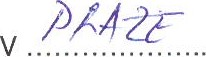 v PRAZE ........................